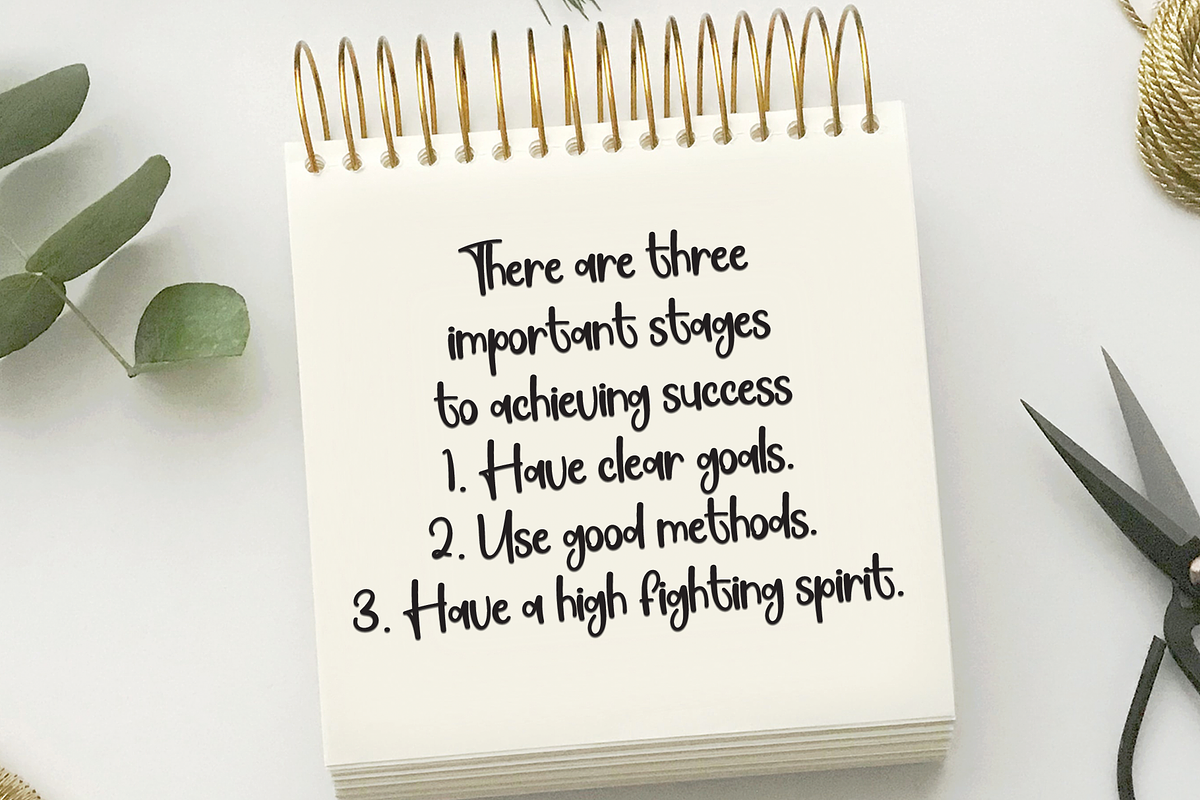 There are three
important stages
to achieving success
1. Have clear goals.
2. Use good methods.
3. Have a high fighting spirit.